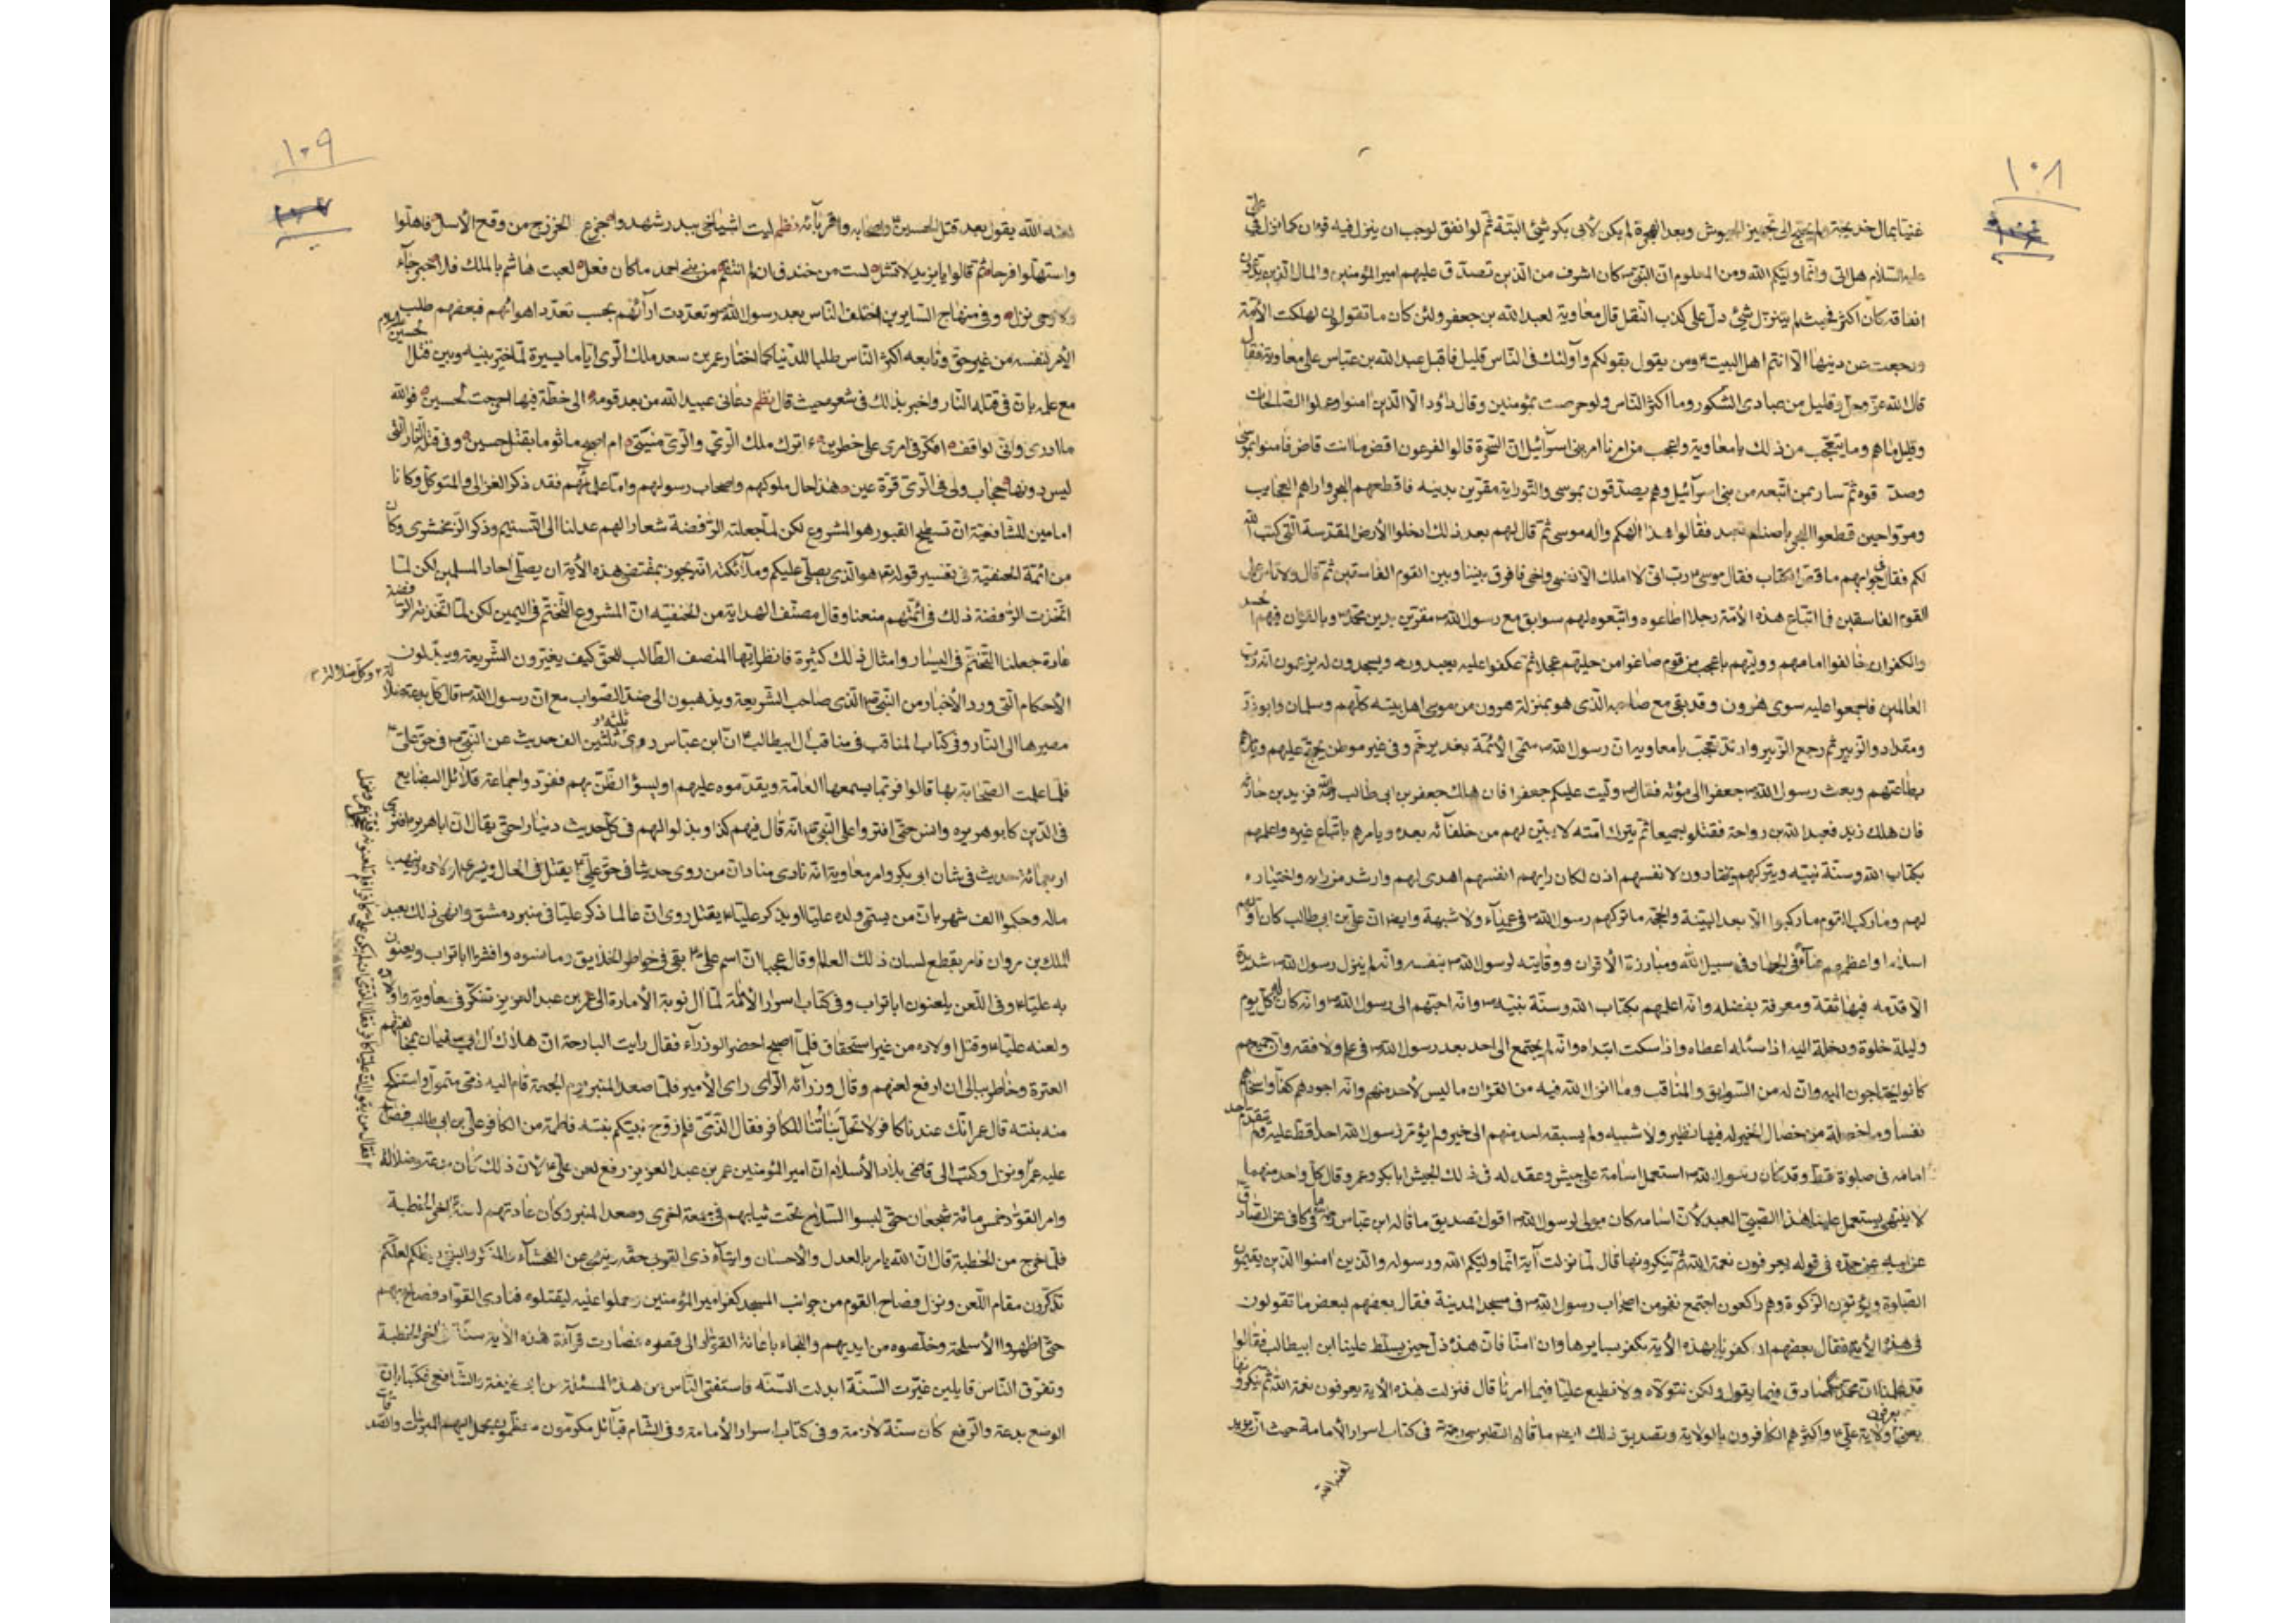 ١٠٨
غنيا بمال خديجة ولم يحتج الى تجهيز الجيوش وبعد الهجرة لم يكن لأبى بكر شئ البتة ثم لو انفق لوجب ان ينزل فيه قران كما نزل فى على
عليه السلام هل اتى وانما وليكم الله ومن المعلوم ان النبى ص كان اشرف من الذين تصدق عليهم امير المؤمنين والمال الذين يدعون
انفاقه كان اكثر فحيث لم ينزل شئ دل على كذب النقل قال معاوية لعبد الله بن جعفر ولئن كان ما تقول لهلكت الأمة
ورجعت عن دينها الا انتم اهل البيت ومن يقول بقولكم وأولئك فى الناس قليل فاقبل عبد الله بن عباس على معاوية فقال
قال الله عز وجل وقليل من عبادى الشكور وما اكثر الناس ولو حرصت بمؤمنين وقال داود الا الذين امنوا وعملوا الصالحات
وقليل ما هم وما يتعجب من ذلك يا معاوية واعجب من امرنا امر بنى اسرآئيل ان السحرة قالوا لفرعون اقض ما انت قاض فامنوا بموسى
وصدقوه ثم سار بمن اتبعه من بنى اسرآئيل وهم يصدقون بموسى والتوراية مقرين بدينه فاقطعهم البحر واراهم العجايب
ومروا حين قطعوا البحر باصنام تعبد فقالوا هذا الهكم واله موسى ثم قال لهم بعد ذلك ادخلوا الأرض المقدسة التى كتب الله
لكم فقال فى جوابهم ما قص الكتاب فقال موسى رب انى لا املك الا نفسى واخى فافرق بيننا وبين القوم الفاسقين ثم قال ولا تاس على
القوم الفاسقين فما اتباع هذه الأمة رجلا اطاعوه واتبعوه لهم سوابق مع رسول الله ص مقرين بدين محمد ص وبالقران فهم
والكفران خالفوا امامهم ووليهم باعجب من قوم صاغوا من حليتهم عجلا ثم عكفوا عليه يعبدونه ويسجدون له يزعمون انه رب
العالمين فاجمعوا عليه سوى هرون وقد بقى مع صاحبه الذى هو بمنزلة هرون من موسى اهل بيته كلهم وسلمان وابو ذر
ومقداد والزبير ثم رجع الزبير وارتد تعجب يا معاوية ان رسول الله ص سمى الأئمة بغدير خم وفى غير موطن يحتج عليهم ويامرهم
بطاعتهم وبعث رسول الله ص جعفرا الى مؤته فقال ص وليت عليكم جعفرا فان هلك جعفر بن ابى طالب فزيد بن حارثه
فان هلك زيد فعبد الله بن رواحة فقتلوا جميعا ثم يترك امته لا يبين لهم من خلفآئه بعده ويامرهم باتباع غيره واعلمهم
بكتاب الله وسنة نبيه ويتركهم يختارون لانفسهم اذن لكان رايهم انفسهم اهدى لهم وارشد من رايه واختياره
لهم وما ركب القوم ما ركبوا الا بعد البينة والحجة ما تركهم رسول الله ص فى عمياء ولا شبهة وايضا ان على بن ابى طالب كان اولهم
اسلاما واعظمهم عنآء فى الجهاد فى سبيل الله ومبارزة الأقران ووقايته لرسول الله ص بنفسه وانه لم ينزل رسول الله ص شديدة
الا قدمه فيها ثقة ومعرفة بفضله وانه اعلمهم بكتاب الله وسنة نبيه ص وانه احبهم الى رسول الله ص وانه كان له كل يوم
وليلة خلوة ودخلة اليه اذا سئله اعطاه واذا سكت ابتداه وانه لم يحتج الى احد بعد رسول الله ص فى علم ولا فقه وان جميعهم
كانوا يحتاجون اليه وان له من السوابق والمناقب وما انزل الله فيه من القران ما ليس لأحد منهم وانه اجودهم كفا واسخاهم
نفسا وما خصلة من خصال الخير له فيها نظير ولا شبيه ولم يسبقه احد منهم الى خير ولم يؤمر رسول الله احدا قط عليه ولم يتقدم احد
امامه فى صلوة قط وقد كان رسول الله ص استعمل اسامة على جيش وعقد له فى ذلك الجيش ابا بكر وعمر وقال كل واحد منهما
لا ينتهى يستعمل علينا هذا الصبى العبد لأن اسامه كان مولى لرسول الله ص اقول تصديق ما قاله ابن عباس ما فى كافى عن الصادق
عن ابيه عن جده فى قوله يعرفون نعمة الله ثم ينكرونها قال لما نزلت آية انما وليكم الله ورسوله والذين امنوا الذين يقيمون
الصلوة ويؤتون الزكوة وهم راكعون اجتمع نفر من اصحاب رسول الله ص فى مسجد المدينة فقال بعضهم لبعض ما تقولون
فى هذه الأية فقال بعضهم ان كفرنا بهذه الأية نكفر بسايرها وان امنا فان هذا ذل حين يسلط علينا ابن ابيطالب فقالوا
قد علمنا ان محمدا صادق فيما يقول ولكن نتولاه ولا نطيع عليا فيما امرنا قال فنزلت هذه الأية يعرفون نعمة الله ثم ينكرونها
يعرفون
يعنى ولاية على واكثرهم الكافرون بالولاية وتصديق ذلك ايضا ما قاله الطبرسى فى كتاب اسرار الأمامة حيث ان يزيد
لعنه الله
١٠٩
لعنه الله يقول بعد قتل الحسين واصحابه واقربآئه نظم ليت اشياخى ببدر شهدوا جزع الخزرج من وقع الأسل فاهلوا
واستهلوا فرحا ثم قالوا يا يزيد لا تشل لست من خندف ان لم انتقم من بنى احمد ما كان فعل لعبت هاشم بالملك فلا خبر جآء
ولا وحى نزل وفى منهاج الساير بن اختلف الناس بعد رسول الله ص وتعددت ارآئهم بحسب تعدد اهوائهم فبعضهم طلب
الأمر لنفسه من غير حق وتابعه اكثر الناس طلبا للدنيا كما اختار عمر بن سعد ملك الرى اياما يسيرة لما خير بينه وبين قتل الحسين
مع علمه بان فى قتله النار واخبر بذلك فى شعره حيث قال نظم دعانى عبيد الله من بعد قومه الى خطة فيها احرجت لحسين فوالله
ما ادرى وانى لواقف افكر فى امرى على خطرين ءاترك ملك الرى والرى منيتى ام اصبح ماثوما بقتل حسين وفى قتله النار التى
ليس دونها حجاب ولى فى الرى قرة عين هذا حال ملوكهم واصحاب رسولهم واما علمآئهم فقد ذكر الغزالى والمتوكل وكانا
امامين للشافعية ان تسطيح القبور هو المشروع لكن لما جعلته الرفضة شعارا لهم عدلنا الى التسنيم وذكر الزمخشرى وكان
من ائمة الحنفية فى تفسير قوله تع هو الذى يصلى عليكم وملآئكته انه يجوز بمقتضى هذه الأية ان يصلى احاد المسلمين لكن لما
اتخذت الرفضة ذلك فى ائمتهم منعنا وقال مصنف الهداية من الحنفيه ان المشروع التختم فى اليمين لكن لما اتخذته الرفضة
عادة جعلنا التختم فى اليسار وامثال ذلك كثيرة فانظر ايها المنصف الطالب للحق كيف يغيرون الشريعة ويبدلون
الأحكام التى ورد الأخبار من النبى ص الذى صاحب الشريعة ويذهبون الى ضد الصواب مع ان رسول الله ص قال كل بدعة ضلالة
وكل ضلالة
مصيرها الى النار وفى كتاب المناقب فى مناقب ال ابيطالب ان ابن عباس روى ثلثين الف حديث عن النبى ص فى حق على
فلما علمت الصحابة بها قالوا فربما يسمعها العامة ويقدموه عليهم او ليسؤ الظن بهم ففرد واجماعة قلآئل البضايع
فى الدين كابو هريره وانس حتى افتروا على النبى ص انه قال فيهم كذا وبذلوا لهم فى كل حديث دينارا حتى يقال ان ابا هريره افترى
اربعمائة حديث فى شان ابى بكر وامر معاوية انه نادى مناد ان من روى حديثا فى حق على يقتل فى الحال وينهب
ماله وحكموا الف شهر بان من يسمى ولده عليا او يذكر عليا يقتل روى ان عالما ذكر عليا فى منبر دمشق وانهى ذلك بعبد
الملك بن مروان فامر بقطع لسان ذلك العالم وقال عجبا ان اسم على بقى فى خواطر الخلايق وما نسوه وافشرا ابا تراب ويعنون
به عليا وفى اللعن يلعنون ابا تراب وفى كتاب اسرار الأئمة لما ال نوبة الأمارة الى عمر بن عبد العزيز تفكر فى معاوية واولاده
ولعنه عليا وقتل اولاده من غير استحقاق فلما اصبح احضر الوزرآء فقال رايت البارحة ان هلاك ال ابى سفيان بمخالفتهم
العترة وخاطر ببالى ان ارفع لعنهم وقال وزرآئه الراى راى الأمير فلما صعد المنبر يوم الجمعة قام اليه ذمى متمول واستنكح
منه بنته قال عمر انك عندنا كافر لا تحل بناتنا للكافر فقال الذمى فلم زوج نبيكم بنته فاطمة من الكافر على بن ابى طالب فصاح
عليه عمر ونزل وكتب الى قاضى بلاد الأسلام ان امير المؤمنين عمر بن عبد العزيز رفع لعن على لان ذلك كان بدعة وضلالة
وامر القواد خمس مائة شجعان حتى لبسوا السلاح تحت ثيابهم فى جمعة اخرى وصعد المنبر وكان عادتهم لعنه اخر الخطبة
فلما خرج من الخطبة قال ان الله يامر بالعدل والأحسان وايتآء ذى القربى حقه وينهى عن الفحشآء والمنكر والبغى يعظكم لعلكم
تذكرون مقام اللعن ونزل فصاح القوم من جوانب المسجد كفر امير المؤمنين وحملوا عليه ليقتلوه فنادى القواد فصاح بهم
حتى اظهروا الأسلحة وخلصوه من ايديهم والتجاء باعانة القواد الى قصره فصارت قرآئة هذه الأية سنة فى اخر الخطبة
وتفرق الناس قايلين غيرت السنة ابدلت السنه فاستفتى الناس من هذه المسئلة من ابى حنيفة والشافعى فكتبا بان
الوضع بدعة والرفع كان سنة لازمة وفى كتاب اسرار الأمامة وفى الشام قبآئل مكرمون معظمون يحمل اليهم المبرات والنقد